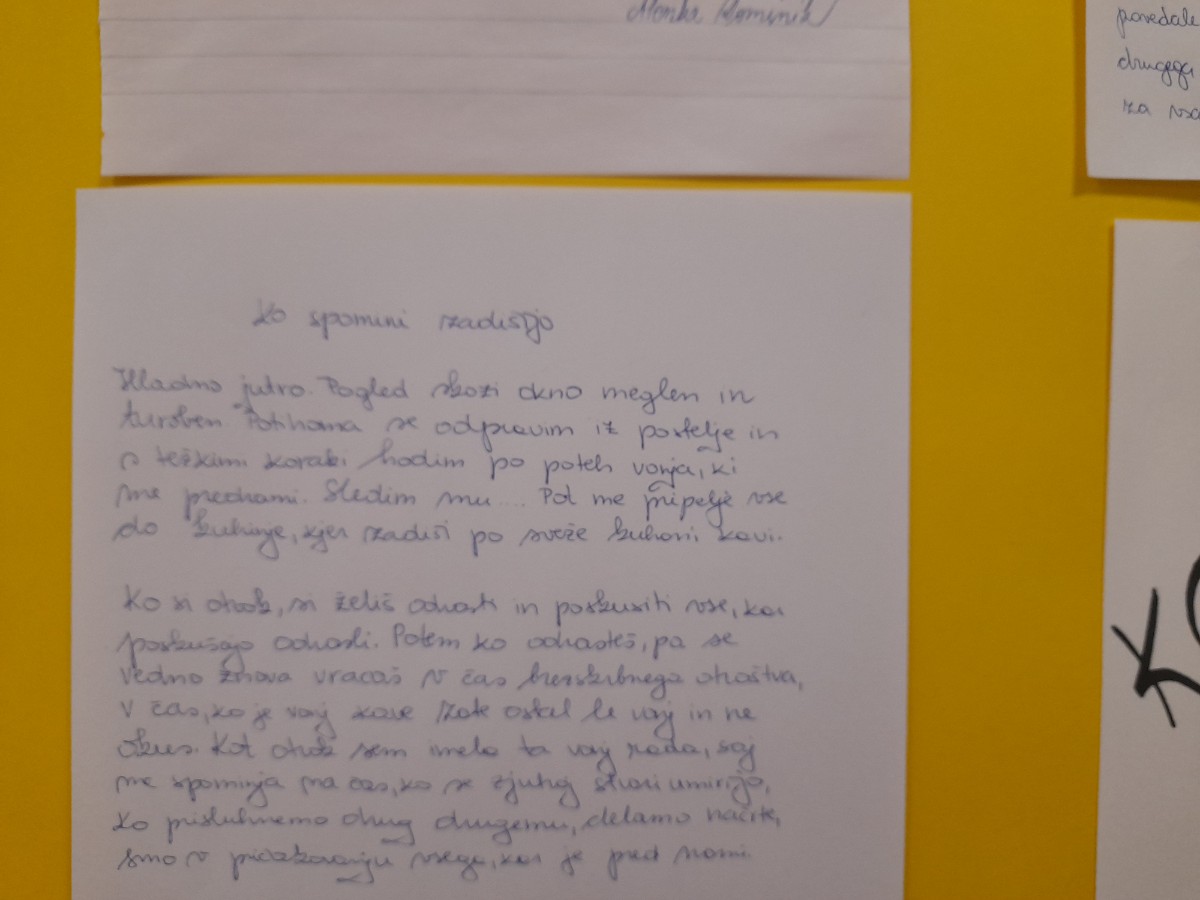 Dominik
povedale
drugega
za vsa
Ko spomini zadišijo
Hladno jutro. Pogled skozi okno meglen in
turoben. Potihoma se odpravim iz postelje in
s težkimi koraki hodim po poteh vonja, ki
me predrami. Sledim mu.... Pot me pripelje vse
do kuhinje, kjer zadiši po sveže kuhani kavi.
Ko si otrok, si želiš odrasti in poskusiti vse, kar
poskušajo odrasli. Potem ko odrasteš, pa se
vedno znova vračaš v čas brezskrbnega otroštva,
v čas, ko je vonj kave zate ostal le vonj in ne
okus. Kot otrok sem imela ta vonj rada, saj
me spominja na čas, ko se zjutraj stvari umirijo,
ko prisluhnemo drug drugemu, delamo načrte,
smo v pričakovanju vsega, kar je pred nami.
K